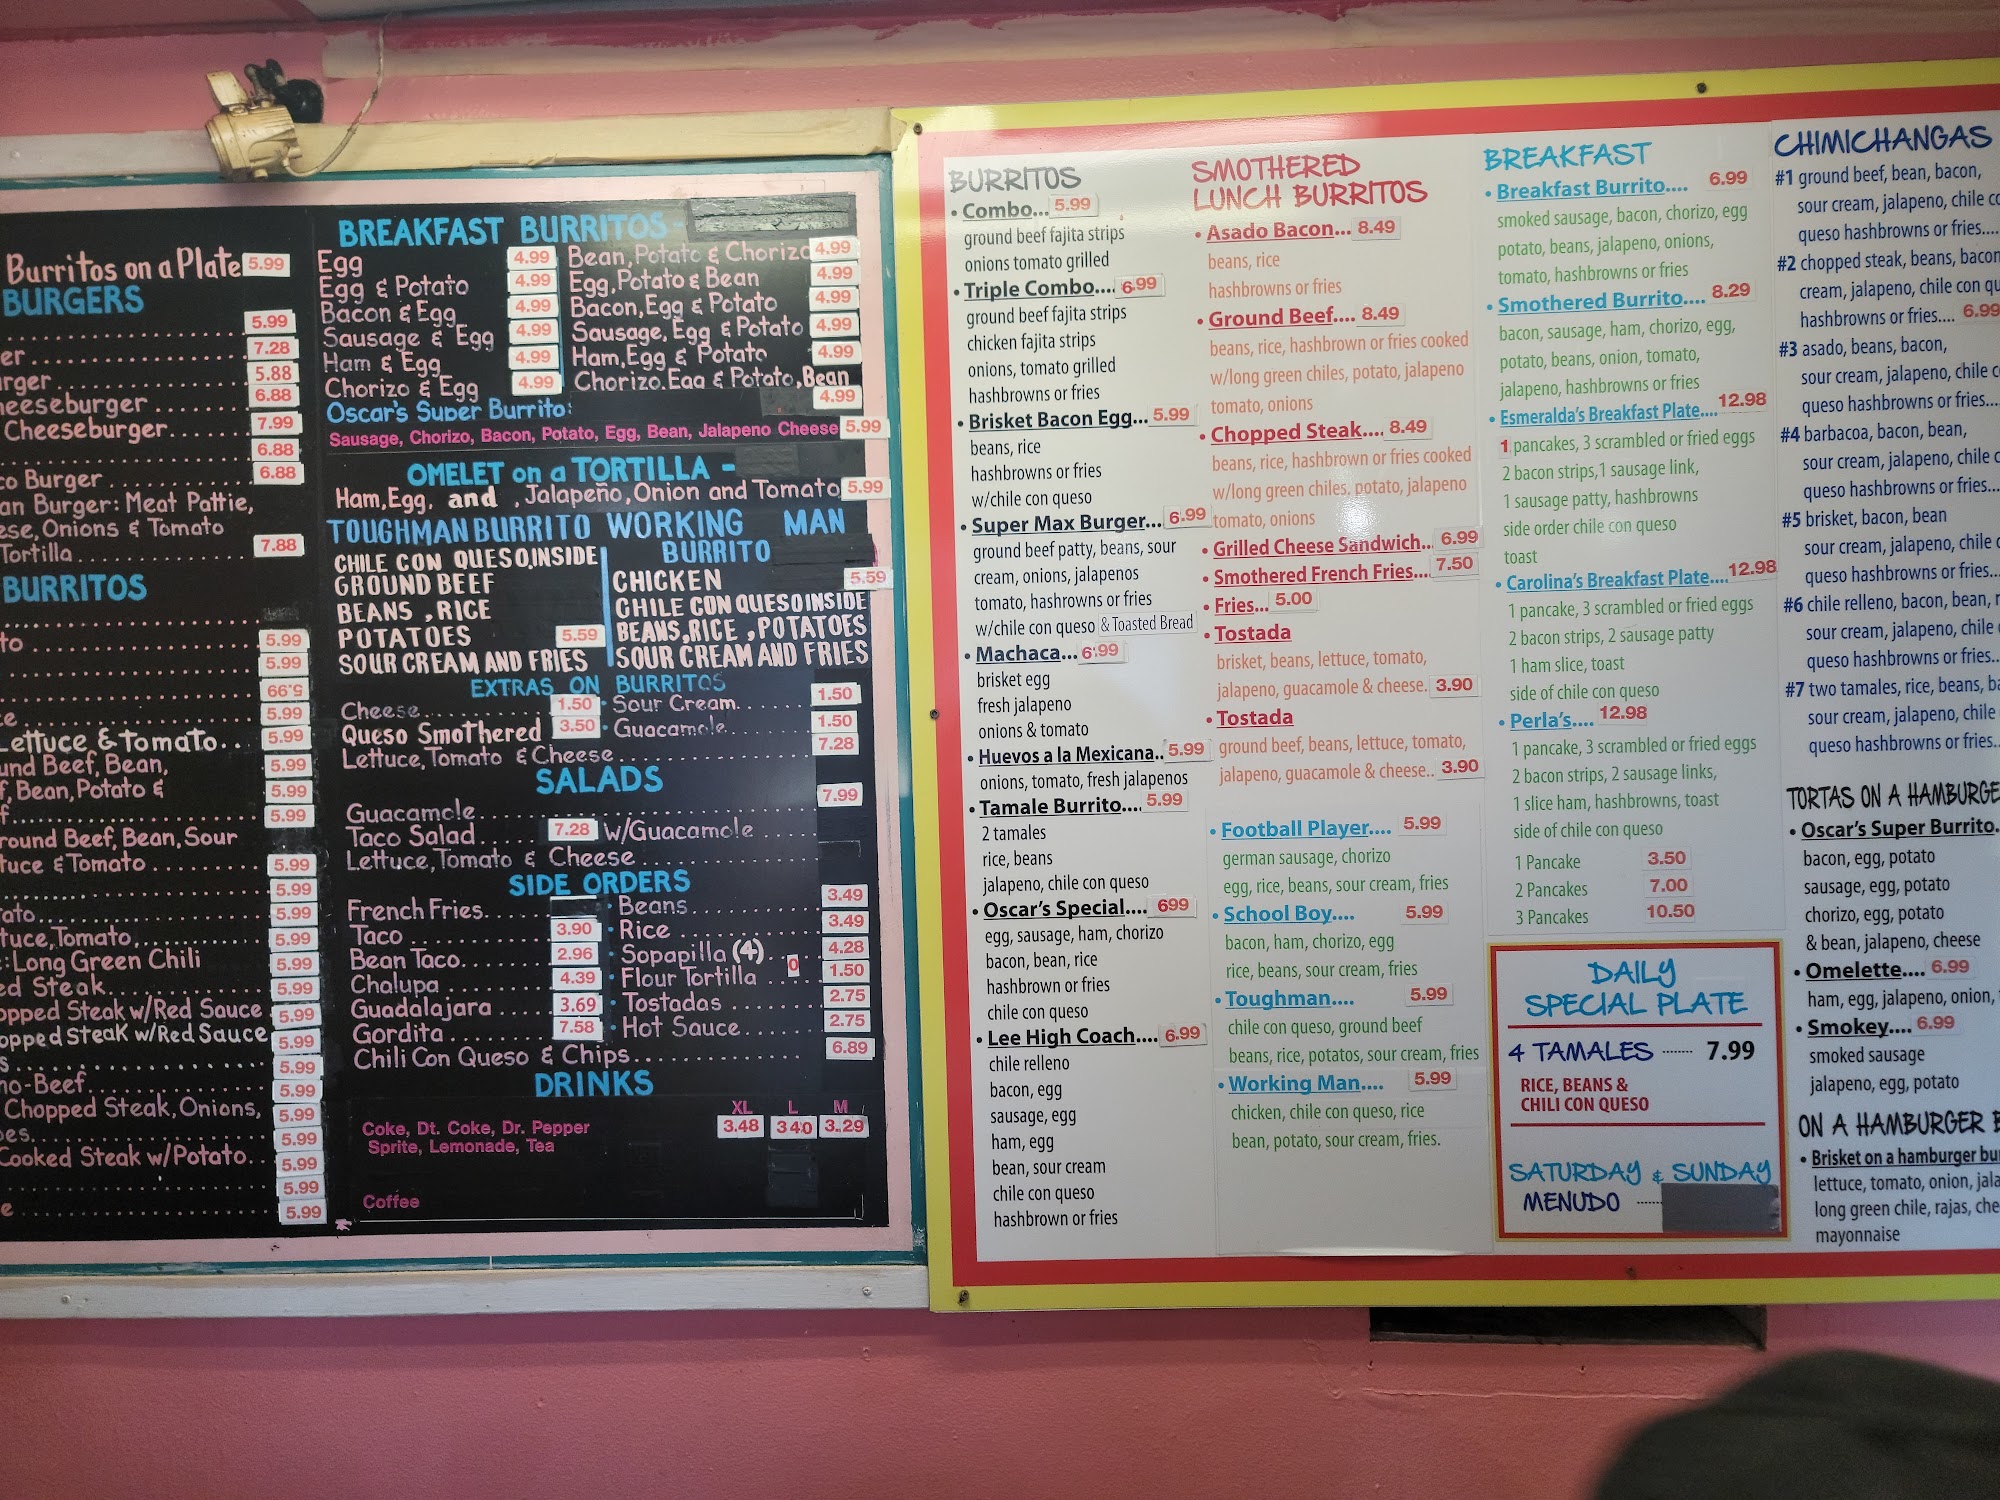 Burritos on a Plate 5.99
BURGERS
5.99
er 7.28
urger 5.88
heeseburger 6.88
Cheeseburger 7.99
6.88
co Burger 6.88
an Burger: Meat Pattie,
ese, Onions & Tomato
Tortilla 7.88
BURRITOS
to 5.99
5.99
5.99
ce 5.99
Lettuce & Tomato.. 5.99
und Beef, Bean, 5.99
f, Bean, Potato & 5.99
f 5.99
round Beef, Bean, Sour
tuce & Tomato 5.99
5.99
tato 5.99
tuce, Tomato, 5.99
: Long Green Chili 5.99
ed Steak 5.99
opped Steak w/Red Sauce 5.99
opped Steak w/Red Sauce 5.99
s 5.99
no-Beef 5.99
Chopped Steak, Onions, 5.99
oes 5.99
Cooked Steak w/Potato.. 5.99
5.99
e 5.99
BREAKFAST BURRITOS-
Egg 4.99
Egg & Potato 4.99
Bacon & Egg 4.99
Sausage & Egg 4.99
Ham & Egg 4.99
Chorizo & Egg 4.99
Bean, Potato & Chorizo 4.99
Egg, Potato & Bean 4.99
Bacon, Egg & Potato 4.99
Sausage, Egg & Potato 4.99
Ham, Egg & Potato 4.99
Chorizo. Egg & Potato, Bean 4.99
Oscar's Super Burrito:
Sausage, Chorizo, Bacon, Potato, Egg, Bean, Jalapeno Cheese 5.99
OMELET on a TORTILLA -
Ham, Egg, and , Jalapeño, Onion and Tomato 5.99
TOUGHMAN BURRITO
CHILE CON QUESO, INSIDE
GROUND BEEF
BEANS , RICE
POTATOES 5.59
SOUR CREAM AND FRIES
WORKING MAN
BURRITO
CHICKEN 5.59
CHILE CON QUESO INSIDE
BEANS, RICE , POTATOES
SOUR CREAM AND FRIES
EXTRAS ON BURRITOS
Cheese 1.50
Queso Smothered 3.50
Sour Cream 1.50
Guacamole 1.50
Lettuce, Tomato & Cheese 7.28
SALADS
Guacamole 7.99
Taco Salad 7.28 W/Guacamole
Lettuce, Tomato & Cheese
SIDE ORDERS
French Fries
Taco 3.90
Bean Taco 2.96
Chalupa 4.39
Guadalajara 3.69
Gordita 7.58
Beans 3.49
Rice 3.49
Sopapilla (4) 4.28
Flour Tortilla 0 1.50
Tostadas 2.75
Hot Sauce 2.75
Chili Con Queso & Chips 6.89
DRINKS
XL L M
Coke, Dt. Coke, Dr. Pepper 3.48 340 3.29
Sprite, Lemonade, Tea
Coffee
BURRITOS
• Combo... 5.99
ground beef fajita strips
onions tomato grilled
• Triple Combo.... 6.99
ground beef fajita strips
chicken fajita strips
onions, tomato grilled
hashbrowns or fries
• Brisket Bacon Egg... 5.99
beans, rice
hashbrowns or fries
w/chile con queso
• Super Max Burger... 6.99
ground beef patty, beans, sour
cream, onions, jalapenos
tomato, hashrowns or fries
w/chile con queso & Toasted Bread
• Machaca... 6.99
brisket egg
fresh jalapeno
onions & tomato
• Huevos a la Mexicana.. 5.99
onions, tomato, fresh jalapenos
• Tamale Burrito.... 5.99
2 tamales
rice, beans
jalapeno, chile con queso
• Oscar's Special.... 699
egg, sausage, ham, chorizo
bacon, bean, rice
hashbrown or fries
chile con queso
• Lee High Coach.... 6.99
chile relleno
bacon, egg
sausage, egg
ham, egg
bean, sour cream
chile con queso
hashbrown or fries
SMOTHERED
LUNCH BURRITOS
• Asado Bacon... 8.49
beans, rice
hashbrowns or fries
• Ground Beef.... 8.49
beans, rice, hashbrown or fries cooked
w/long green chiles, potato, jalapeno
tomato, onions
• Chopped Steak.... 8.49
beans, rice, hashbrown or fries cooked
w/long green chiles, potato, jalapeno
tomato, onions
• Grilled Cheese Sandwich.. 6.99
• Smothered French Fries.... 7.50
• Fries... 5.00
• Tostada
brisket, beans, lettuce, tomato,
jalapeno, guacamole & cheese. 3.90
• Tostada
ground beef, beans, lettuce, tomato,
jalapeno, guacamole & cheese.. 3.90
• Football Player.... 5.99
german sausage, chorizo
egg, rice, beans, sour cream, fries
• School Boy.... 5.99
bacon, ham, chorizo, egg
rice, beans, sour cream, fries
• Toughman.... 5.99
chile con queso, ground beef
beans, rice, potatos, sour cream, fries
• Working Man.... 5.99
chicken, chile con queso, rice
bean, potato, sour cream, fries.
BREAKFAST
• Breakfast Burrito.... 6.99
smoked sausage, bacon, chorizo, egg
potato, beans, jalapeno, onions,
tomato, hashbrowns or fries
• Smothered Burrito.... 8.29
bacon, sausage, ham, chorizo, egg,
potato, beans, onion, tomato,
jalapeno, hashbrowns or fries
• Esmeralda's Breakfast Plate.... 12.98
1 pancakes, 3 scrambled or fried eggs
2 bacon strips,1 sausage link,
1 sausage patty, hashbrowns
side order chile con queso
toast
• Carolina's Breakfast Plate.... 12.98
1 pancake, 3 scrambled or fried eggs
2 bacon strips, 2 sausage patty
1 ham slice, toast
side of chile con queso
• Perla's.... 12.98
1 pancake, 3 scrambled or fried eggs
2 bacon strips, 2 sausage links,
1 slice ham, hashbrowns, toast
side of chile con queso
1 Pancake 3.50
2 Pancakes 7.00
3 Pancakes 10.50
DAILY
SPECIAL PLATE
4 TAMALES ...... 7.99
RICE, BEANS &
CHILI CON QUESO
SATURDAY & SUNDAY
MENUDO
CHIMICHANGAS
#1 ground beef, bean, bacon,
sour cream, jalapeno, chile co
queso hashbrowns or fries....
#2 chopped steak, beans, bacon
cream, jalapeno, chile con qu
hashbrowns or fries.... 6.99
#3 asado, beans, bacon,
sour cream, jalapeno, chile c
queso hashbrowns or fries...
#4 barbacoa, bacon, bean,
sour cream, jalapeno, chile c
queso hashbrowns or fries...
#5 brisket, bacon, bean
sour cream, jalapeno, chile c
queso hashbrowns or fries...
#6 chile relleno, bacon, bean, r
sour cream, jalapeno, chile
queso hashbrowns or fries..
#7 two tamales, rice, beans, ba
sour cream, jalapeno, chile
queso hashbrowns or fries..
TORTAS ON A HAMBURGE
• Oscar's Super Burrito.
bacon, egg, potato
sausage, egg, potato
chorizo, egg, potato
& bean, jalapeno, cheese
• Omelette.... 6.99
ham, egg, jalapeno, onion,
• Smokey.... 6.99
smoked sausage
jalapeno, egg, potato
ON A HAMBURGER B
• Brisket on a hamburger bu
lettuce, tomato, onion, jala
long green chile, rajas, che
mayonnaise